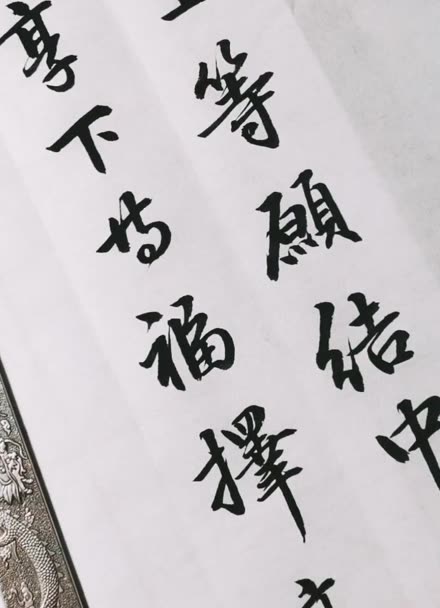 等願結中
享下等福擇